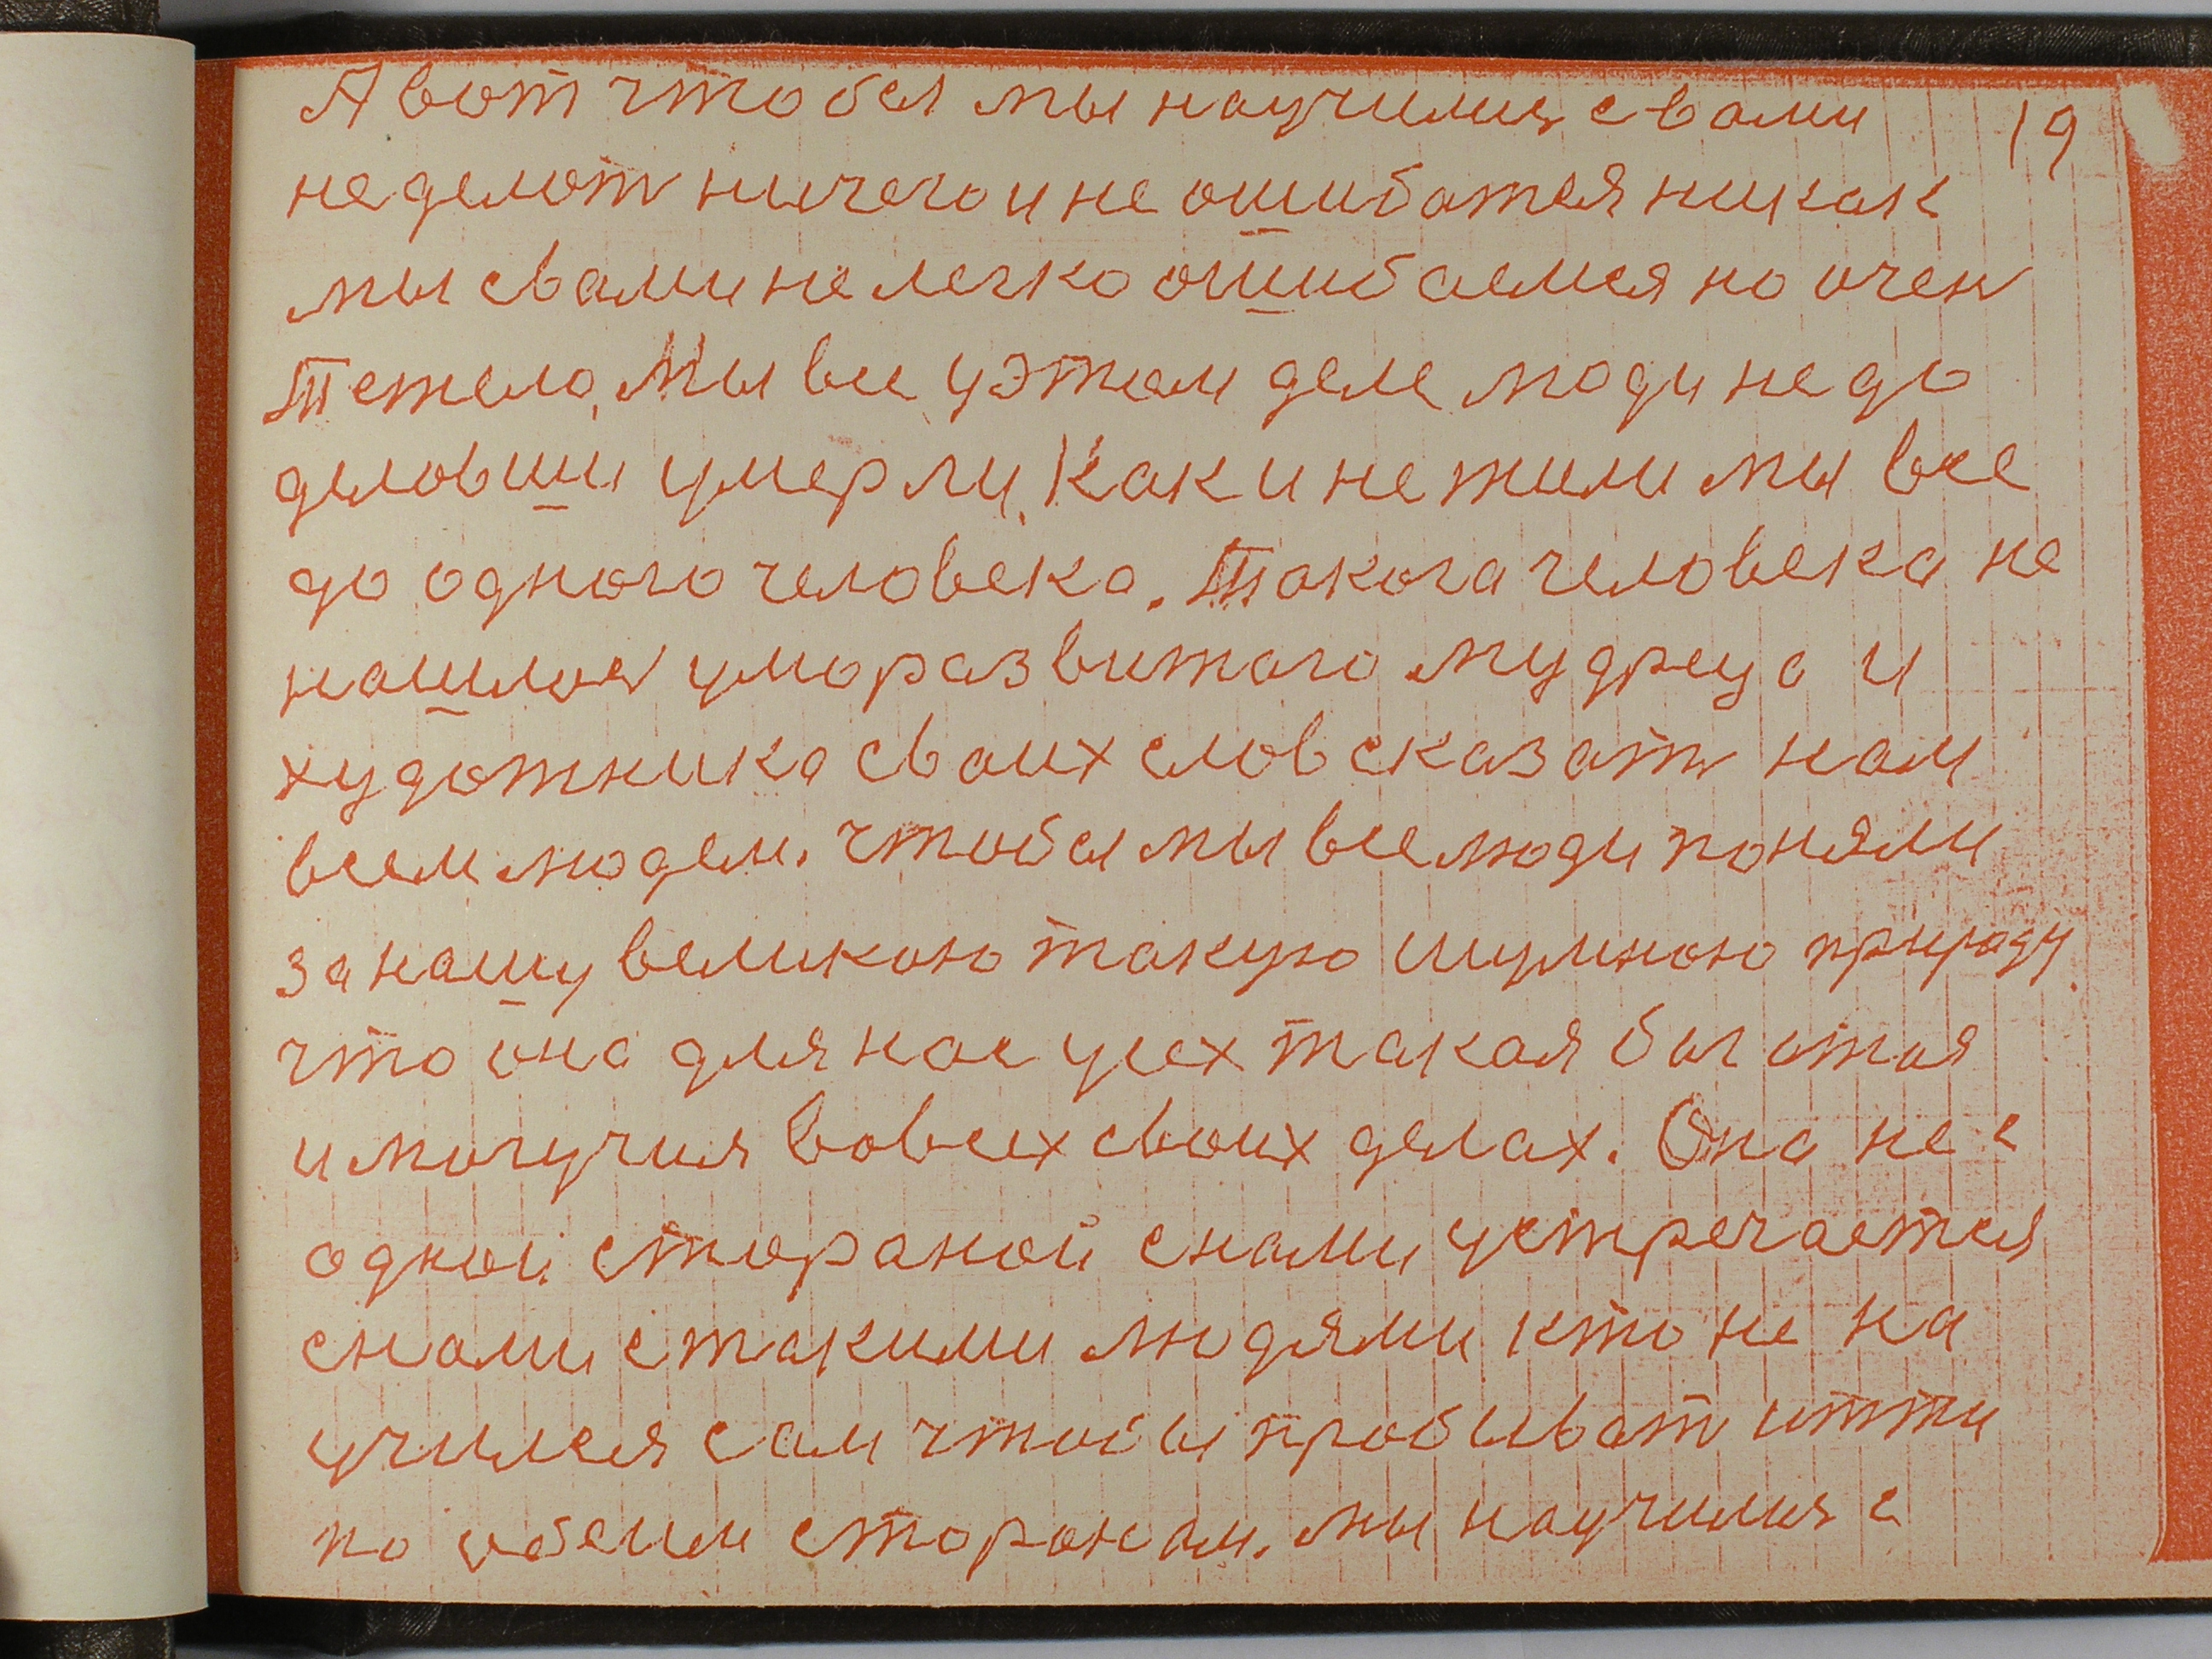 А вот чтобы мы научились с вами
19
не делать ничего и не ошибатся никак
мы свами не легко ошибаемся но очень
тежело. Мы все у этом деле люди не до
деловши умерли. Как и не жили мы все
до одного человека. Такога человека не
нашлось уморазвитого мудреца и
художника сваих слов сказать нам
всем людем. чтобы мы все люди поняли
за нашу великою такую шумною природу.
что она для нас усех такая богатая
и могучия вовсех своих делах. Она не с
одной стораной снами устречается
снами с такими людями кто не на
учился сам чтобы пробывать итти
по обеим сторонам. мы научился с